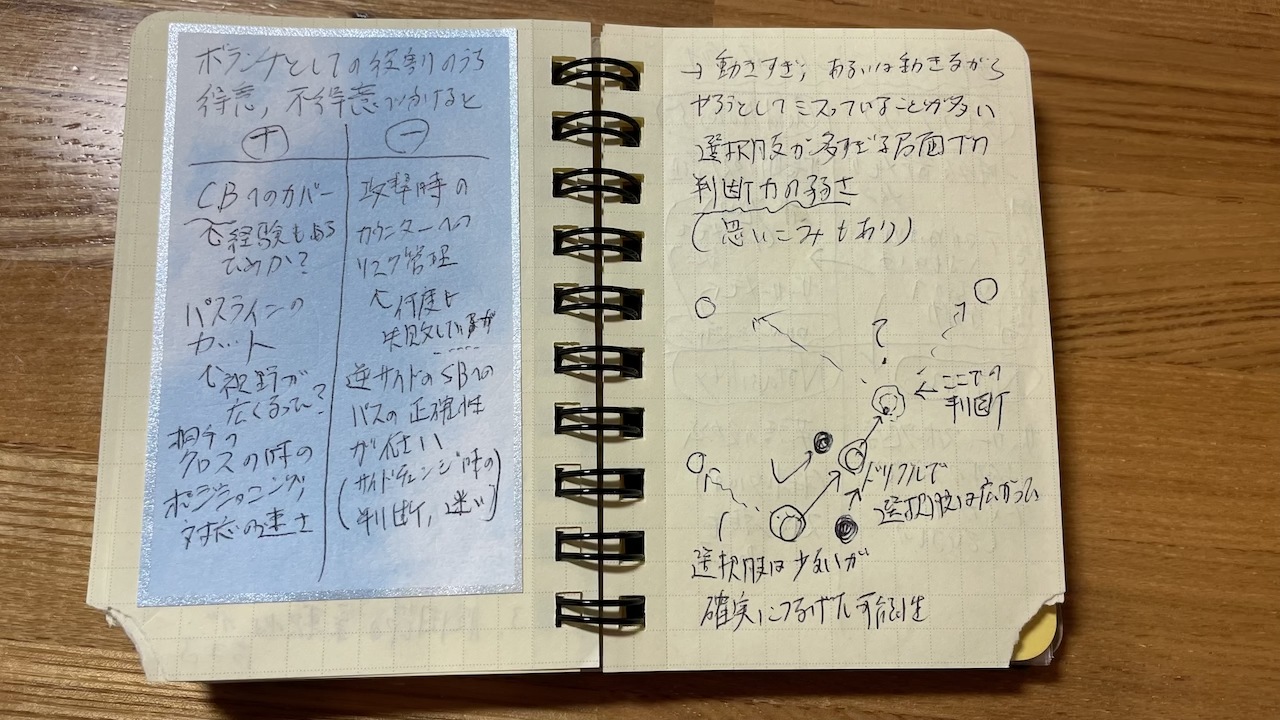 ボランチとしての役割のうち
得意,不得意でわけると
+
CBへのカバー
↑経験もある
ためか?
パスラインの
カット
↑視野が
広くなって?
相手の
クロスの時の
ポジショニング,
対応の速さ
-
攻撃時の
カウンターへの
リスク管理
↑何度も
失敗しているが
逆サイドのSBへの
パスの正確性
が低い
(サイドチェンジ時の
判断,迷い)
→動きすぎ,あるいは動きながら
やろうとしてミスっていることが多い
選択肢が多すぎる局面での
判断力の弱さ
(思いこみもあり)
?
←ここでの
判断
ドリブルで
選択肢は広がった
選択肢は少ないが
確実につなげた可能性